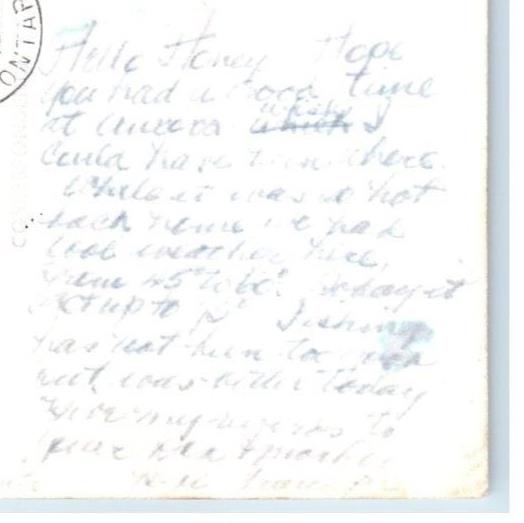 ONTAR
Hello Honey Hope
you had a Good time
at Aurora which wish I
could have been there.
While it was so hot
back home we had
cool weather here,
from 45° to 60°. Today it
got up to
Fishing
has not been too
but was better Today
Give my regards to
your &